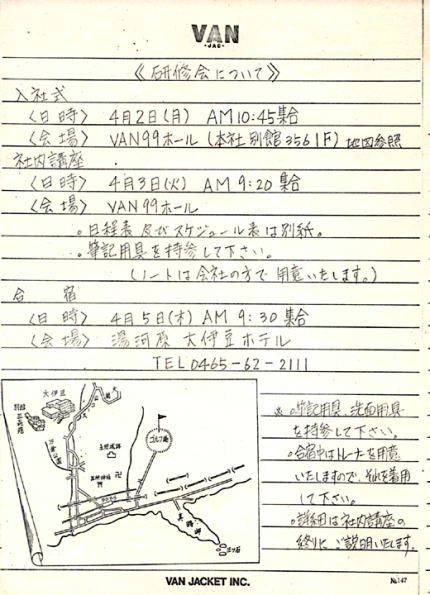 VAN
-JAC-
《研修会について》
入社式
〈日時〉 4月2日(月) AM10:45集合
〈会場〉 VAN99ホール (本社別館356 1F) 地図参照
社内講座
〈日時〉 4月3日(火) AM 9:20 集合
〈会場〉 VAN99ホール
。日程表及びスケジュール表は別紙。
。筆記用具を持参して下さい。
(ノートは会社の方で用意いたします。)
合宿
〈日時〉 4月5日(木) AM 9:30 集合
〈会場〉 湯河原 大伊豆ホテル
TEL 0465-62-2111
大伊豆
ゴルフ場
真鶴岬
三ツ石
※ 。筆記用具、洗面用具
を持参して下さい。
。合宿中はトレーナーを用意
いたしますので、それを着用
して下さい。
。詳細は社内講座の
終りにご説明いたします。
VAN JACKET INC.
№147